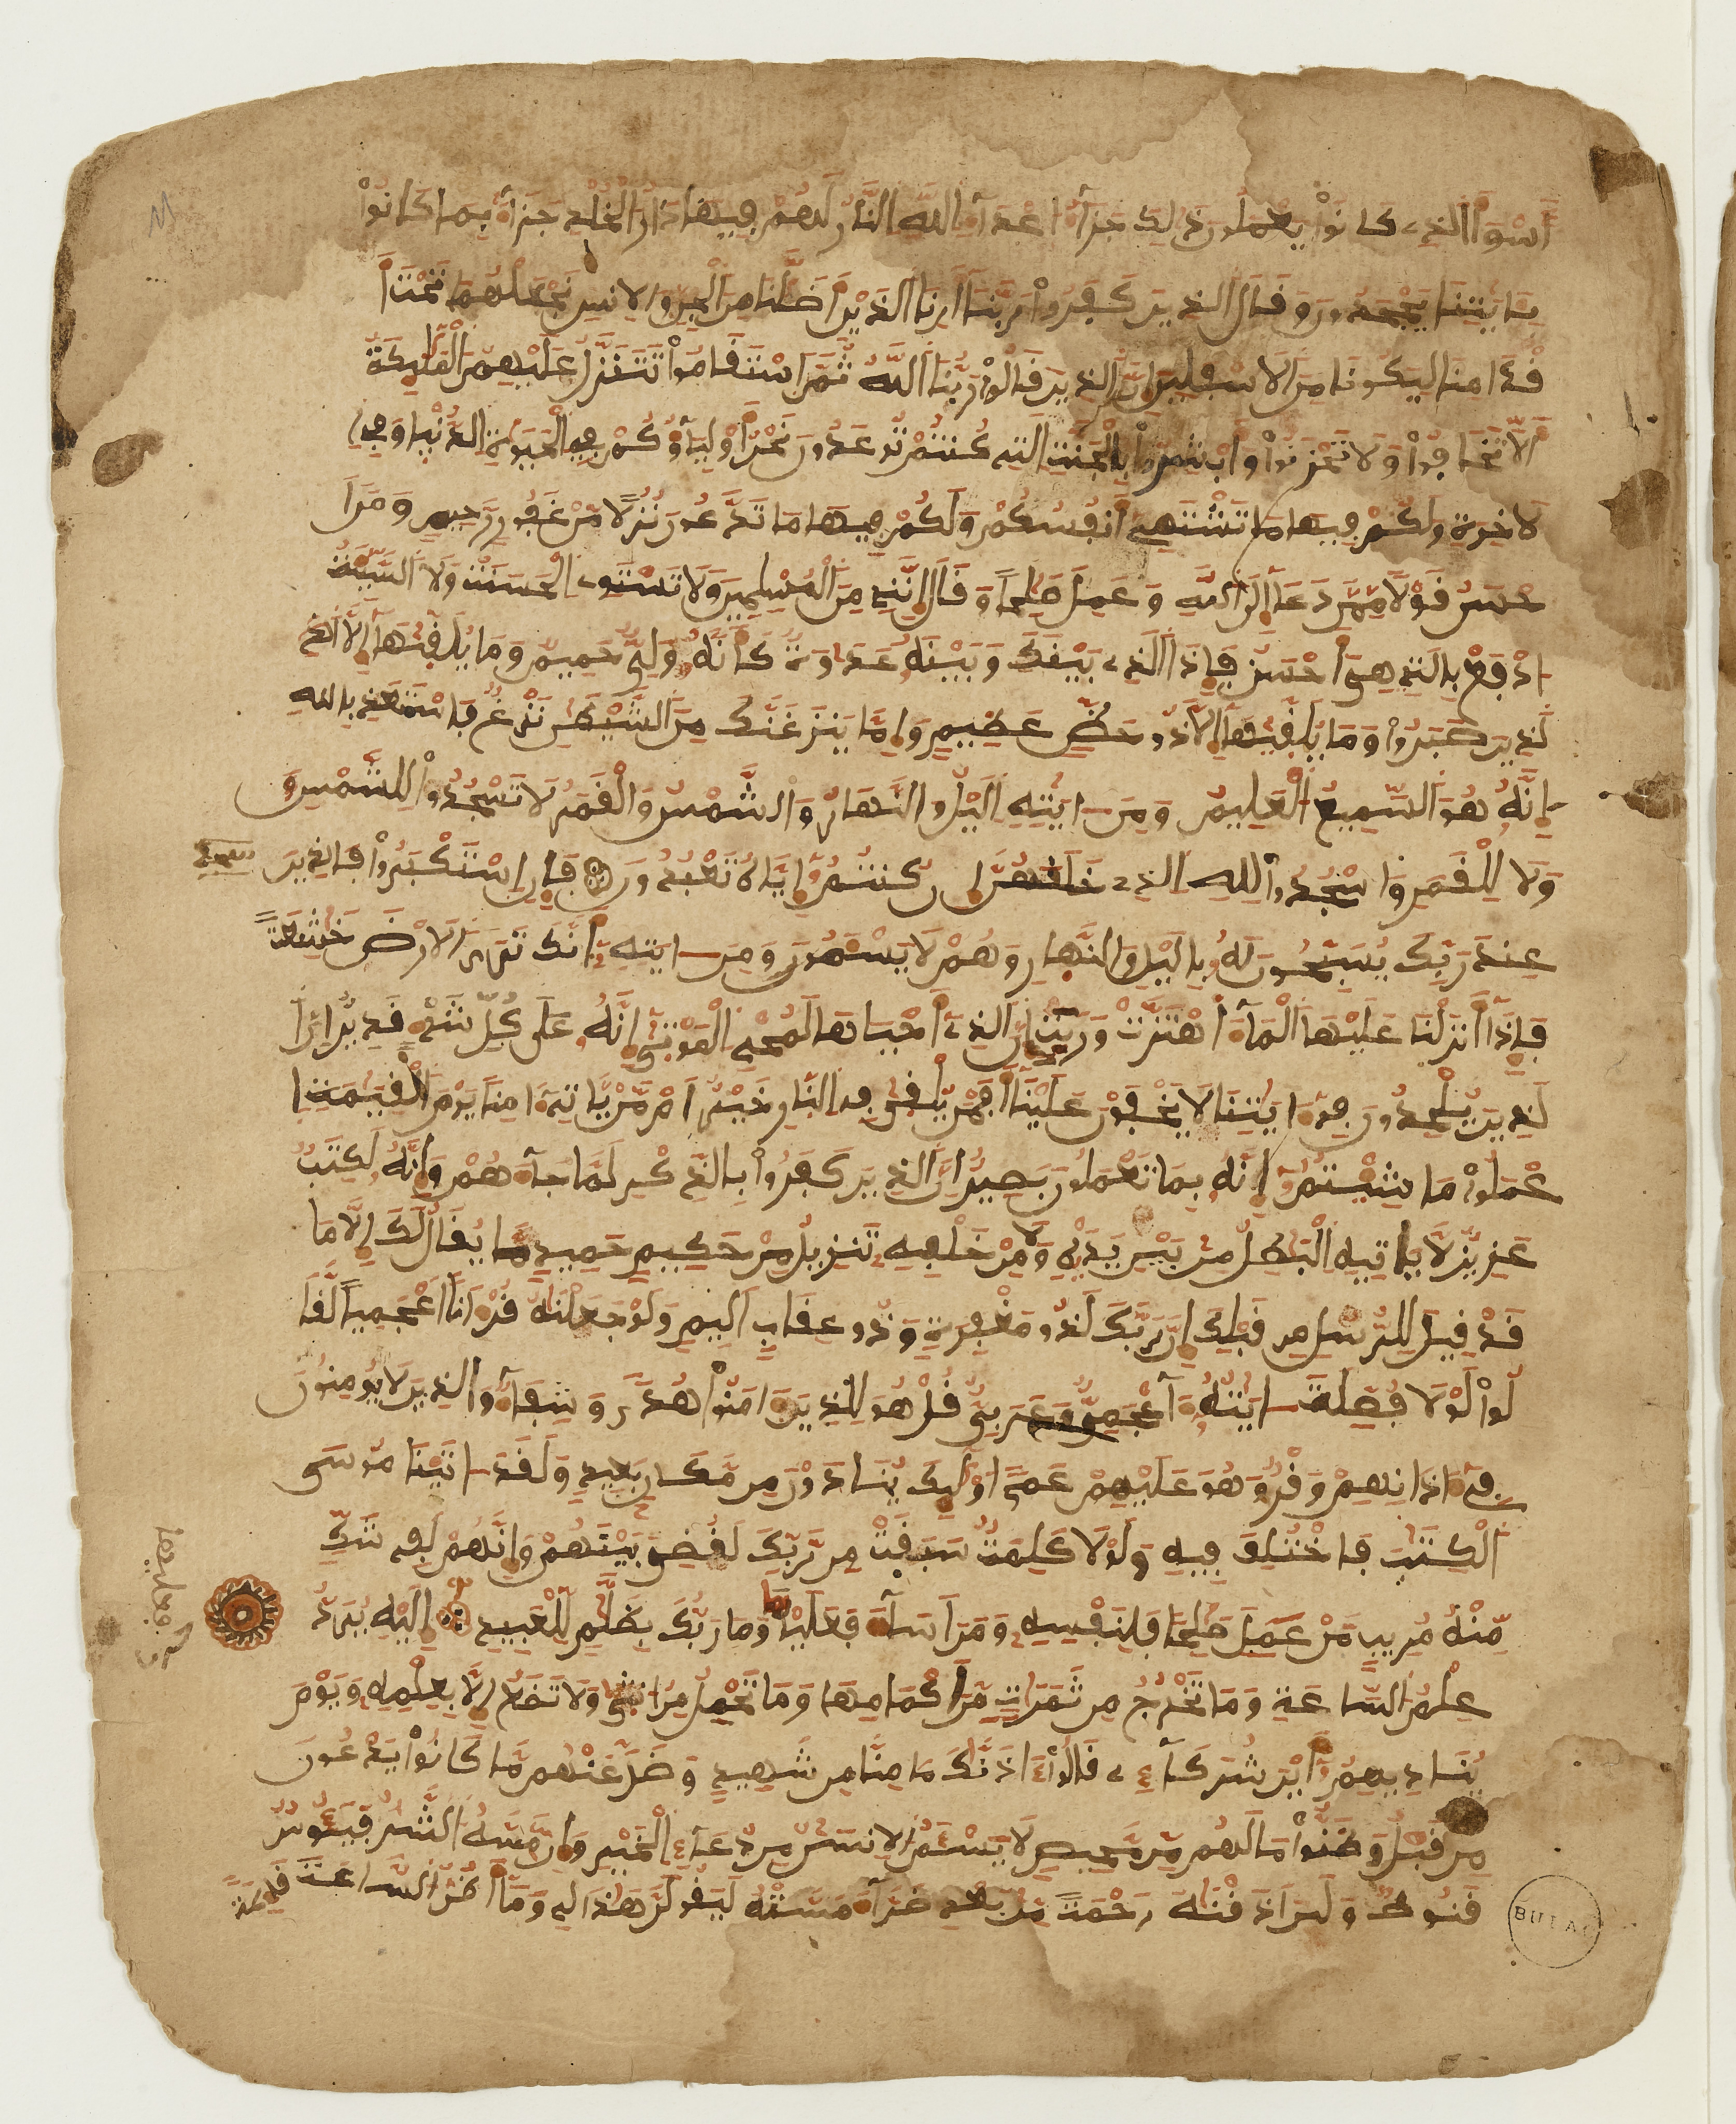 أسوأ الذي كانوا يعملون ذلك جزاء اعداء الله النار لهم فيها دار الخلد جزاء بما كانوا
بايتنا يجحدون وقال الذين كفروا ربنا ارنا الذين اضلنا من الجن والانس نجعلهما تحت ا
قدامنا ليكونا من الاسفلين ان الذين قالوا ربنا الله ثم استقاموا تتنزل عليهم الملئكة
الا تخافوا ولا تحزنوا وابشروا بالجنة التي كنتم توعدون نحن اولياؤكم في الحيوة الدنيا وفي ا
لاخرة ولكم فيها ما تشتهي انفسكم ولكم فيها ما تدعون نزلا من غفور رحيم ومن ا
حسن قولا ممن دعا الى الله وعمل صلحا وقال انني من المسلمين ولا تستوي الحسنة ولا السيئة
ادفع بالتي هي احسن فاذا الذي بينك وبينه عداوة كانه ولي حميم وما يلقيها الا ا
لذين صبروا وما يلقيها الا ذو حظ عظيم واما ينزغنك من الشيطن نزغ فاستعذ بالله
انه هو السميع العليم ومن ايته اليل والنهار والشمس والقمر لا تسجدوا للشمس و
ولا للقمر واسجدوا لله الذي خلقهن ان كنتم اياه تعبدون فان استكبروا فالذين سجدة
عند ربك يسبحون له باليل والنهار وهم لا يسئمون ومن ايته انك ترى الارض خشعة
فاذا انزلنا عليها الماء اهتزت وربت ان الذي احياها لمحي الموتى انه على كل شيء قدير ان ا
لذين يلحدون في ايتنا لا يخفون علينا افمن يلقى في النار خير ام من ياتي امنا يوم القيمة ا
عملوا ما شئتم انه بما تعملون بصير ان الذين كفروا بالذكر لما جاءهم وانه لكتب
عزيز لا ياتيه البطل من بين يديه ولا من خلفه تنزيل من حكيم حميد ما يقال لك الا ما
قد قيل للرسل من قبلك ان ربك لذو مغفرة وذو عقاب اليم ولو جعلنه قرءانا اعجميا لقا
لوا لولا فصلت ايته ءاعجمي وعربي قل هو للذين ءامنوا هدى وشفاء والذين لا يومنون
في ءاذانهم وقر وهو عليهم عمى اولئك ينادون من مكان بعيد ولقد ءاتينا موسى
الكتب فاختلف فيه ولولا كلمة سبقت من ربك لقضي بينهم وانهم لفي شك
منه مريب من عمل صلحا فلنفسه ومن اساء فعليها وما ربك بظلم للعبيد اليه يرد
علم الساعة وما تخرج من ثمرات من اكمامها وما تحمل من انثى ولا تضع الا بعلمه ويوم
يناديهم اين شركاءي قالوا ءاذنك ما منا من شهيد وضل عنهم ما كانوا يدعون
من قبل وظنوا ما لهم من محيص لا يسئم الانسن من دعاء الخير وان مسه الشر فيئوس
قنوط ولئن اذقنه رحمة من بعد ضراء مسته ليقولن هذا لي وما اظن الساعة قائمة
BULAC